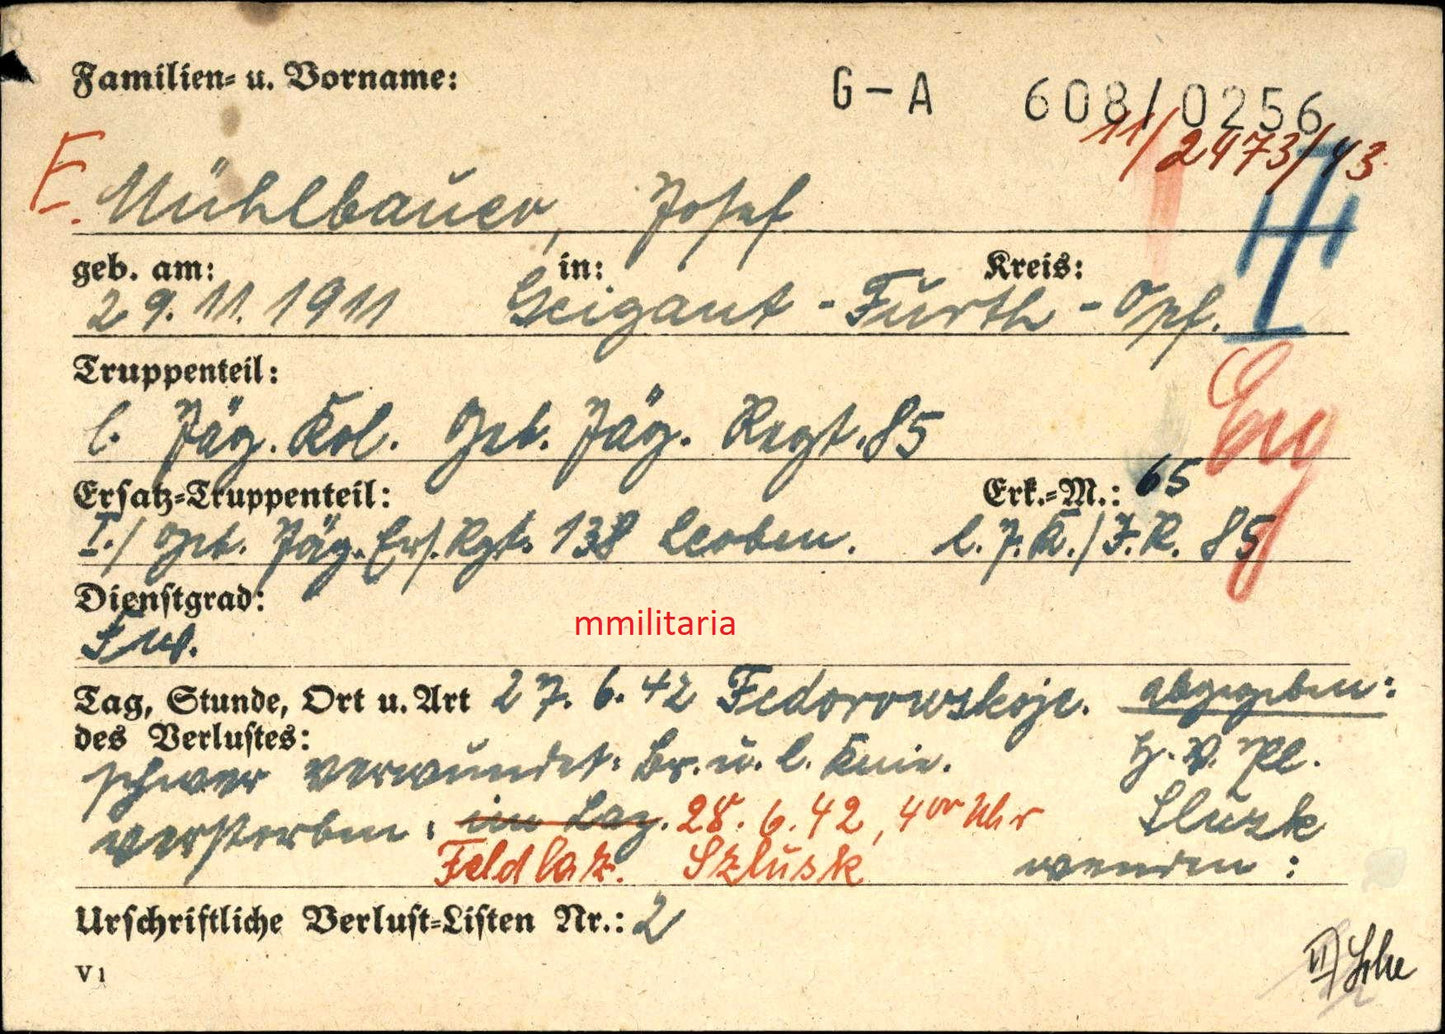 Familien- u. Vorname:
G-A 608/0256
11/2473/43
E. Mühlbauer, Josef
geb. am: in: Kreis:
29.11.1911 Geigant - Furth - Opf.
Truppenteil:
l. Jäg. Kol. Geb. Jäg. Regt. 85
Ersatz-Truppenteil: Erk.-M.: 65
I./ Geb. Jäg. Ers. Rgt. 138 Leoben. l. J. K./ J. R. 85
Dienstgrad:
mmilitaria
Tag, Stunde, Ort u. Art 27. 6. 42 Fedorowskoje. abgegeben:
des Verlustes:
schwer verwundet: Br. u. l. Knie. H. V. Pl.
verstorben: im Laz. 28. 6. 42, 4⁰⁰ Uhr Sluzk
Feldlaz. Szlusk wenden:
Urschriftliche Verlust-Listen Nr.: 2
V 1